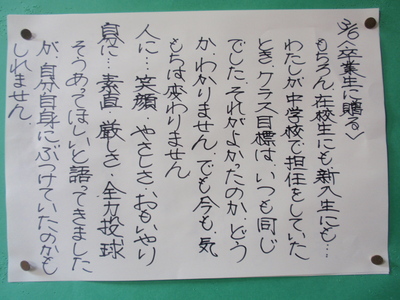 3/6〈卒業生に贈る〉
もちろん、在校生にも、新入生にも…
わたしが中学校で担任をしていた
とき、クラス目標は、いつも同じ
でした。それがよかったのか、どう
か、わかりません。でも今も、気も
ちは変わりません
人に…笑顔・やさしさ・おもいやり
自分に…素直・厳しさ・全力投球
そうあってほしいと語ってきました
が、自分自身にぶつけていたのかも
しれません